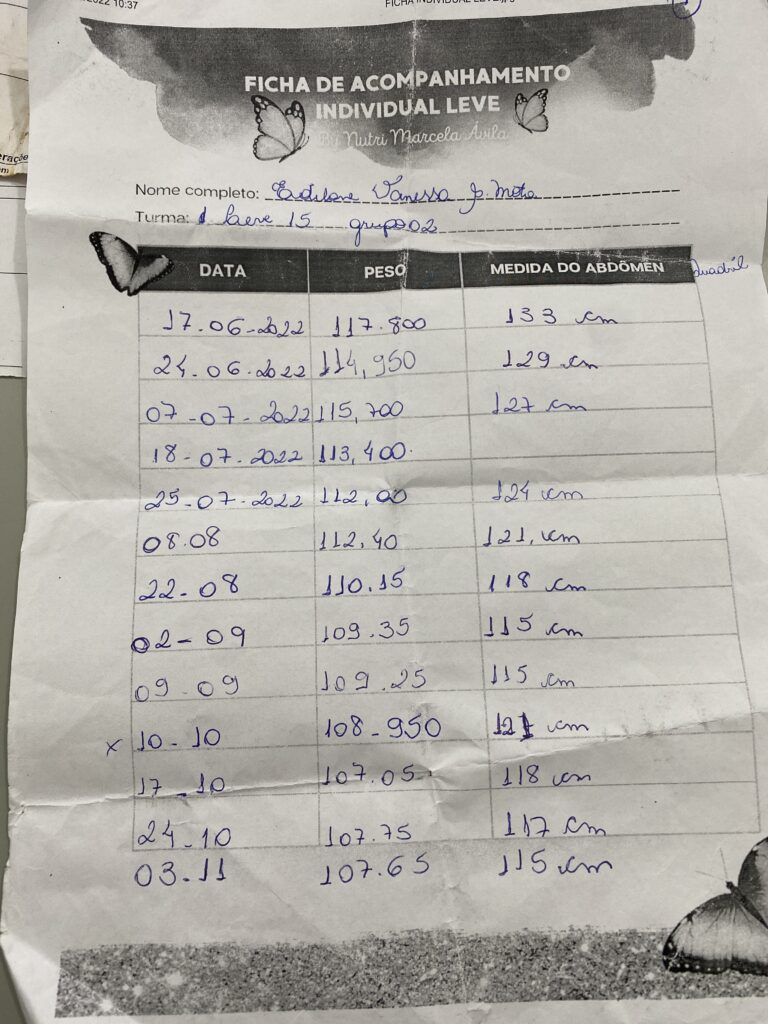 2022 10:37
FICHA DE ACOMPANHAMENTO
INDIVIDUAL LEVE
By Nutri Marcela Ávila
Nome completo: Vanessa
Turma: Leve 15 grupo 02
DATA PESO MEDIDA DO ABDÔMEN Quadril
17-06-2022 117.800 133 cm
24-06-2022 114,950 129 cm
07-07-2022 115,700 127 cm
18-07-2022 113,400
25-07-2022 112,00 124 cm
08.08 112,40 121, cm
22-08 110.15 118 cm
02-09 109.35 115 cm
09.09 109.25 115 cm
x 10-10 108-950 121 cm
17-10 107.05 118 cm
24-10 107.75 117 cm
03.11 107.65 115 cm